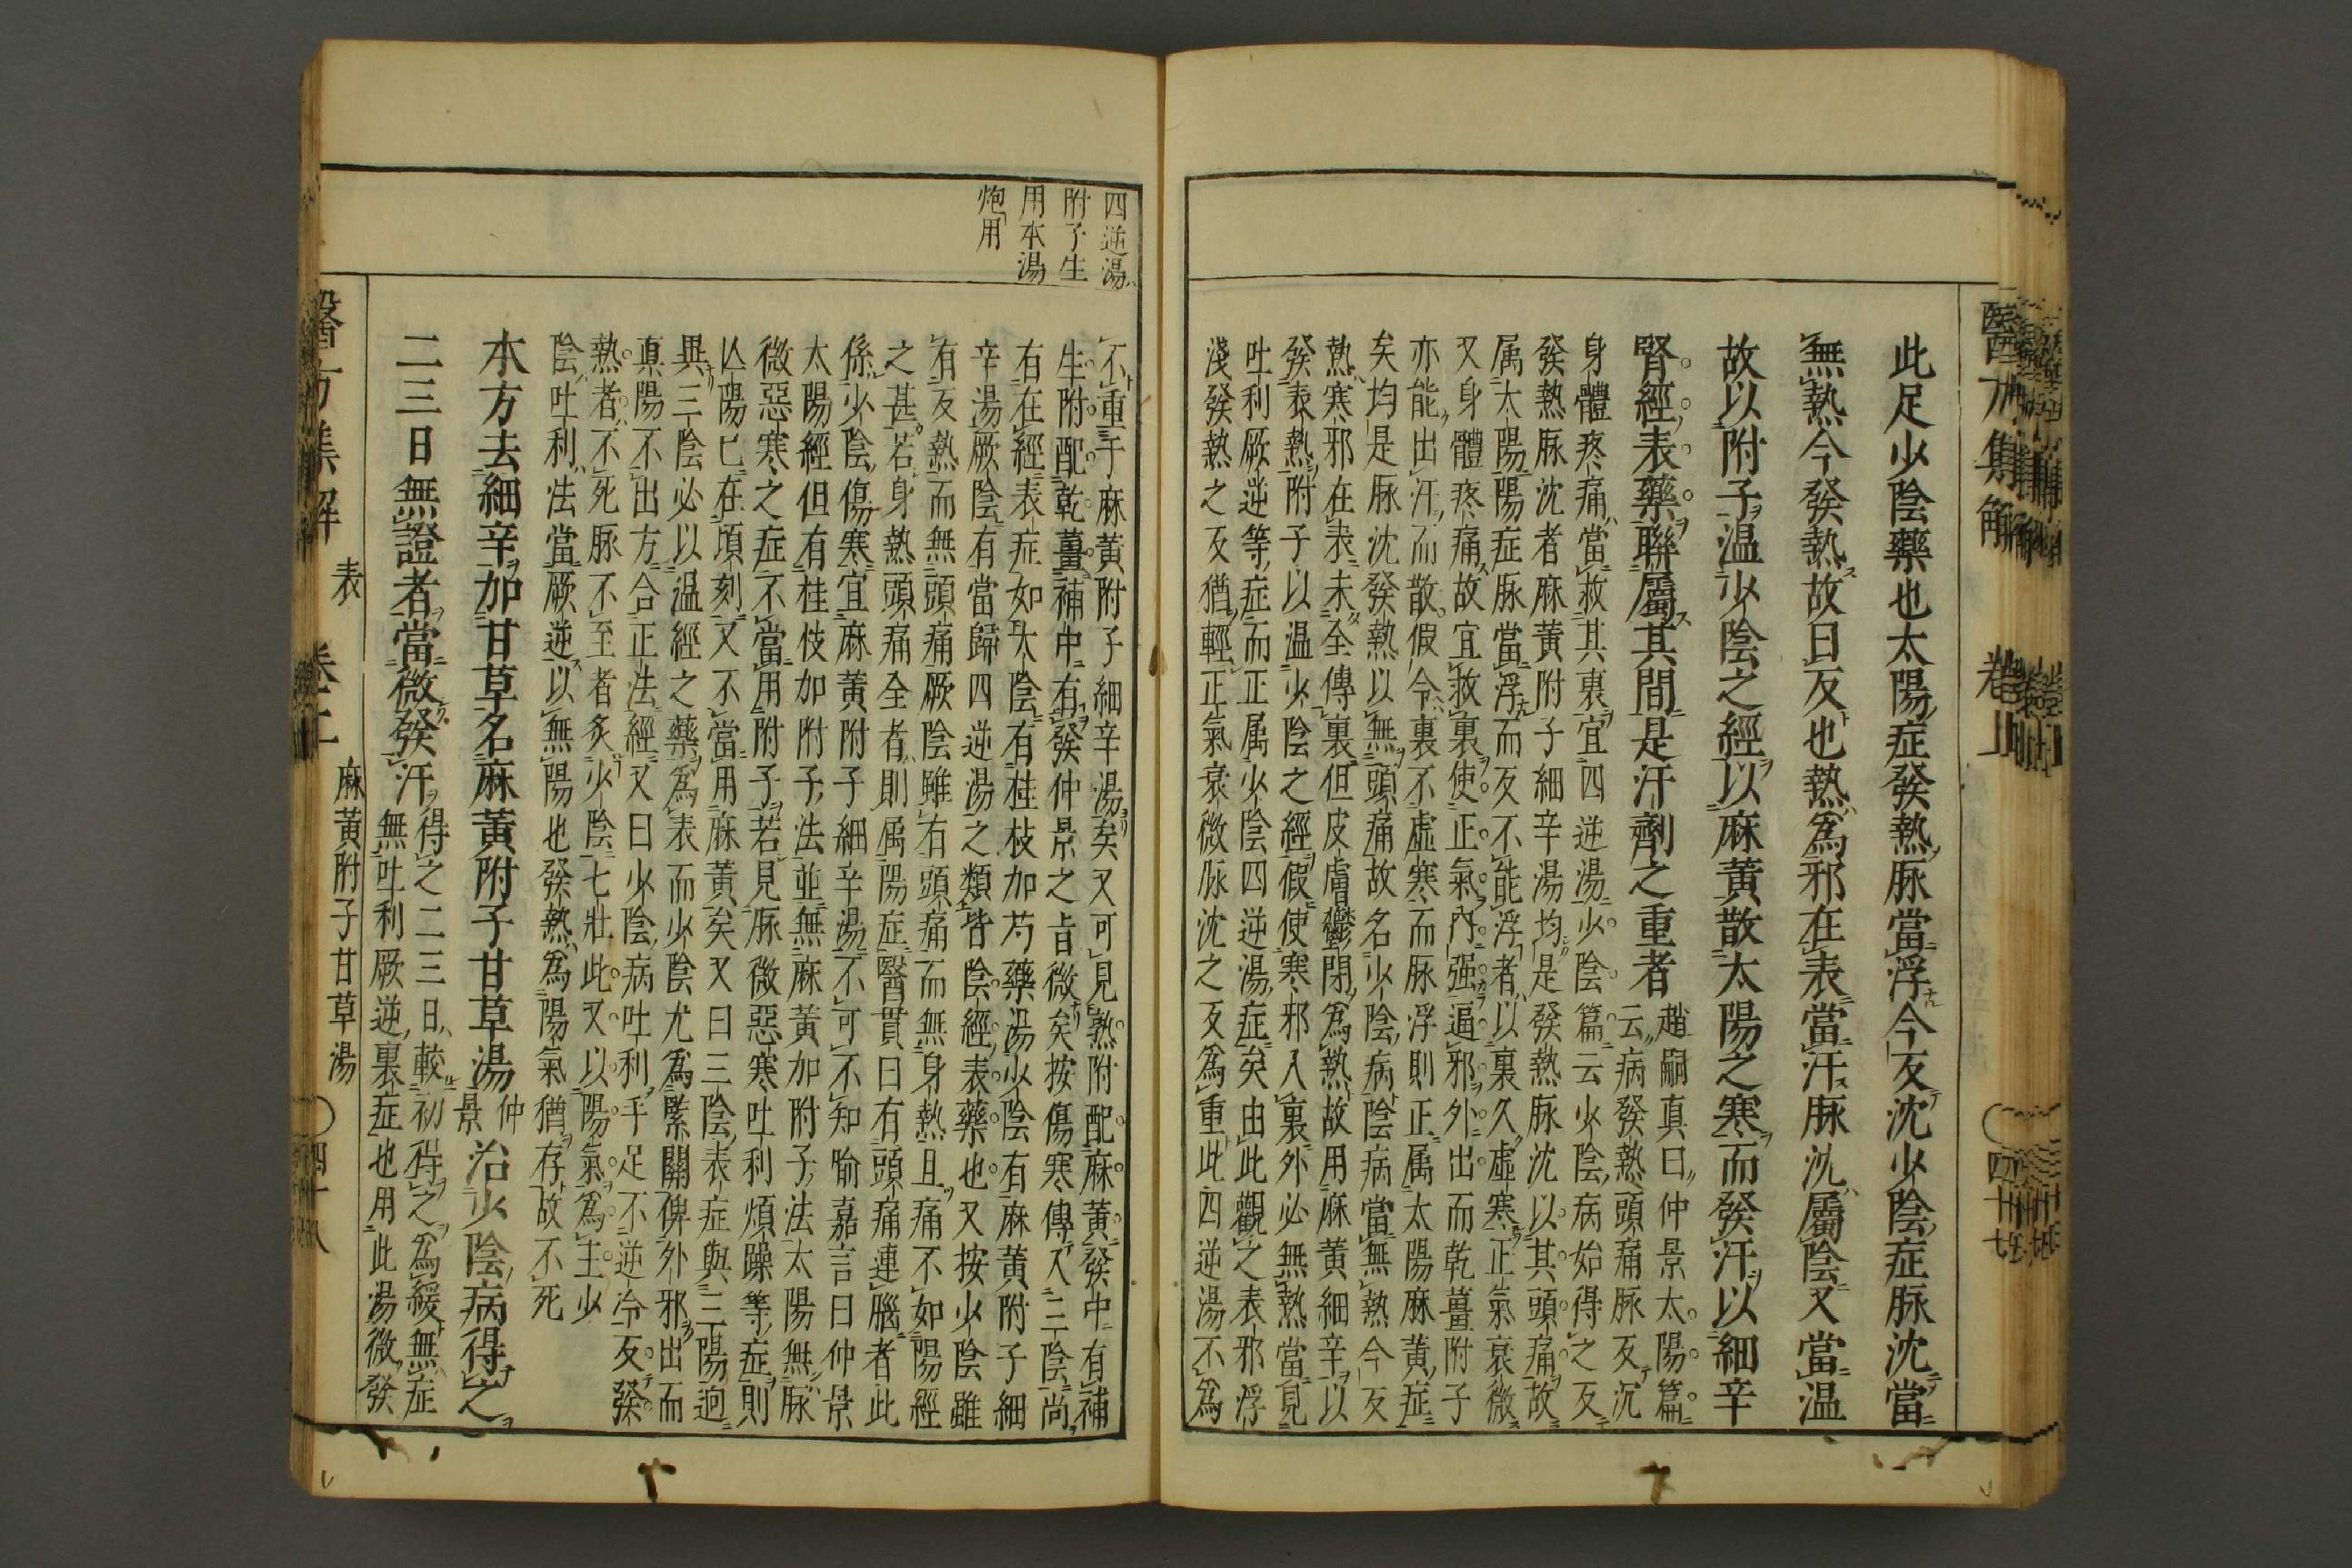 醫方集解 卷上 〇四十七
此足少陰藥也太陽症發熱脉當浮今反沈少陰症脉沈當
無熱今發熱故曰反也熱爲邪在表當汗脉沈屬陰又當温
故以附子温少陰之經以麻黄散太陽之寒而發汗以細辛
腎經表藥聯屬其間是汗劑之重者
趙嗣真曰仲景太陽篇
云病發熱頭痛脉反沉
身體疼痛當救其裏宜四逆湯少陰篇云少陰病始得之反
發熱脉沈者麻黄附子細辛湯均是發熱脉沈以其頭痛故
属太陽陽症脉當浮而反不能浮者以裏久虚寒正氣衰微
又身體疼痛故宜救裏使正氣内强逼邪外出而乾薑附子
亦能出汗而散假令裏不虚寒而脉浮則正属太陽麻黄症
矣均是脉沈發熱以無頭痛故名少陰病陰病當無熱今反
熱寒邪在表未全傳裏但皮膚鬱閉爲熱故用麻黄細辛以
發表熱附子以温少陰之經假使寒邪入裏外必無熱當見
吐利厥逆等症而正属少陰四逆湯症矣由此觀之表邪浮
淺發熱之反猶輕正氣衰微脉沈之反爲重此四逆湯不爲
四逆湯
附子生
用本湯
炮用
不重于麻黄附子細辛湯矣又可見熟附配麻黄發中有補
生附配乾薑補中有發仲景之旨微矣按傷寒傳入三陰尚
有在經表症如太陰有桂枝加芍藥湯少陰有麻黄附子細
辛湯厥陰有當歸四逆湯之類皆陰經表藥也又按少陰雖
有反熱而無頭痛厥陰雖有頭痛而無身熱且痛不如陽經
之甚若身熱頭痛全者則属陽症醫貫曰有頭痛連腦者此
係少陰傷寒宜麻黄附子細辛湯不可不知喻嘉言曰仲景
太陽經但有桂枝加附子法並無麻黄加附子法太陽無脉
微惡寒之症不當用附子若見脉微惡寒吐利煩躁等症則
亾陽已在頃刻又不當用麻黄矣又曰三陰表症與三陽迥
異三陰必以温經之藥爲表而少陰尤爲緊關俾外邪出而
真陽不出方合正法經又曰少陰病吐利手足不逆冷反發
熱者不死脉不至者炙少陰七壯此又以陽氣爲主少
陰吐利法當厥逆以無陽也發熱爲陽氣猶存故不死
本方去細辛加甘草名麻黄附子甘草湯仲景治少陰病得之
二三日無證者當微發汗
得之二三日較初得之爲緩無症
無吐利厥逆裏症也用此湯微發
醫方集解 表 卷上 麻黄附子甘草湯 〇四十八